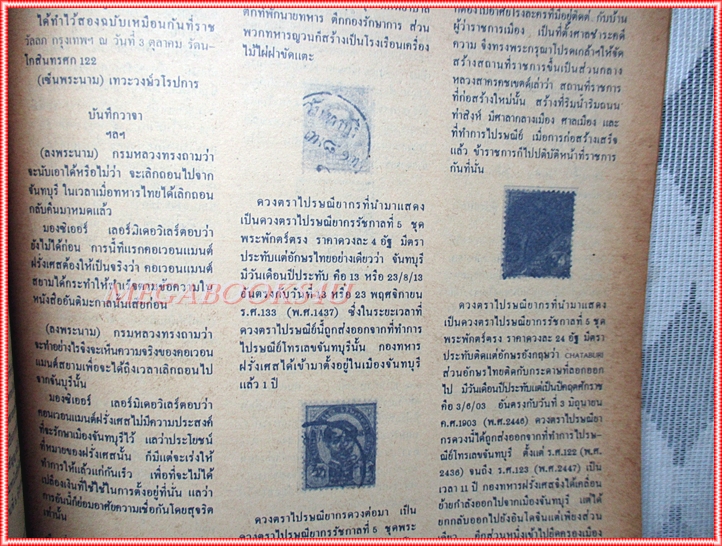 ได้ทำไว้สองฉบับเหมือนกันที่ราช
วัลลภ กรุงเทพฯ ณ วันที่ 3 ตุลาคม รัตน-
โกสินทรศก 122
(เซ็นพระนาม) เทวะวงษ์วโรปการ
บันทึกวาจา
ฯลฯ
(ลงพระนาม) กรมหลวงทรงถามว่า
จะนับเอาได้หรือไม่ว่า จะเลิกถอนไปจาก
จันทบุรี ในเวลาเมื่อทหารไทยได้เลิกถอน
กลับคืนมาหมดแล้ว
มองซิเออร์ เลอร์มิเดอวิเลร์ตอบว่า
ยังไม่ได้ก่อน การนี้ที่แรกคอเวอนแมนต์
ฝรั่งเศสต้องให้เป็นจริงว่า คอเวอนแมนต์
สยามได้กระทำให้สำเร็จตามข้อความใน
หนังสืออันติมะกาลนั้นเสียก่อน
(ลงพระนาม) กรมหลวงทรงถามว่า
จะทำอย่างไรจึงจะเห็นความจริงของคอเวอน
แมนต์สยามเพื่อจะได้ถึงเวลาเลิกถอนไป
จากจันทบุรีนั้น
มองซิเออร์ เลอร์มิเดอวิเลร์ตอบว่า
คอนเวอนแมนต์ฝรั่งเศสไม่มีความประสงค์
ที่จะรักษาเมืองจันทบุรีไว้ แลว่าประโยชน์
ที่หมายของฝรั่งเศสนั้น ก็มีแต่จะเร่งให้
ทำการให้แล้วแก่กันเร็ว เพื่อที่จะไม่ได้
เปลืองเงินที่ใช้ใช้ในการตั้งอยู่ที่นั้น แลว่า
การอันนี้ก็ย่อมอาศัยความเชื่อกันโดยสุจริต
เท่านั้น
ตึกที่พักนายทหาร ตึกกองรักษาการ ส่วน
พวกทหารญวนก็สร้างเป็นโรงเรือนเครื่อง
ไม้ไผ่ฝาขัดแตะ
ดวงตราไปรษณียากรที่นำมาแสดง
เป็นดวงตราไปรษณียากรรัชกาลที่ 5 ชุด
พระพักตร์ตรง ราคาดวงละ 4 อัฐ มีตรา
ประทับแต่อักษรไทยอย่างเดียวว่า จันทบุรี
มีวันเดือนปีประทับ คือ 13 หรือ 23/8/13
อันตรงกับวันที่ 13 หรือ 23 พฤศจิกายน
ร.ศ.133 (พ.ศ.1437) ซึ่งในระยะเวลาที่
ดวงตราไปรษณีย์นี้ถูกส่งออกจากที่ทำการ
ไปรษณีย์โทรเลขจันทบุรีนั้น กองทหาร
ฝรั่งเศสได้เข้ามาตั้งอยู่ในเมืองจันทบุรี
แล้ว 1 ปี
ดวงตราไปรษณียากรดวงต่อมา เป็น
ดวงตราไปรษณียากรรัชกาลที่ 5 ชุดพระ
ก่อนไปอาศัยโรงละครที่มีอยู่ติดต่อ กับบ้าน
ผู้ว่าราชการเมือง เป็นที่ตั้งศาลชำระคดี
ความ จึงทรงพระกรุณาโปรดเกล้าฯให้จัด
สร้างสถานที่ราชการขึ้นเป็นส่วนกลาง
หลวงสาครคชเขตต์เล่าว่า สถานที่ราชการ
ที่ก่อสร้างใหม่นั้น สร้างที่ริมน้ำริมถนน
ท่าสิงห์ มีศาลากลางเมือง ศาลเมือง และ
ที่ทำการไปรษณีย์ เมื่อการก่อสร้างเสร็จ
แล้ว ข้าราชการก็ไปปฏิบัติหน้าที่ราชการ
กันที่นั้น
ดวงตราไปรษณียากรที่นำมาแสดง
เป็นดวงตราไปรษณียากรรัชกาลที่ 5 ชุด
พระพักตร์ตรง ราคาดวงละ 24 อัฐ มีตรา
ประทับติดแต่อักษรอังกฤษว่า CHATABURI
ส่วนอักษรไทยติดกับกระดาษที่ลอกออก
ไป มีวันเดือนปีประทับแต่เป็นปีคฤตศักราช
คือ 3/6/03 อันตรงกับวันที่ 3 มิถุนายน
ค.ศ.1903 (พ.ศ.2446) ดวงตราไปรษณียา
กรดวงนี้ได้ถูกส่งออกจากที่ทำการไปรษ-
ณีย์โทรเลขจันทบุรี ตั้งแต่ ร.ศ.122 (พ.ศ.
2436) จนถึง ร.ศ.123 (พ.ศ.2447) เป็น
เวลา 11 ปี กองทหารฝรั่งเศสจึงได้เคลื่อน
ย้ายกำลังออกไปจากเมืองจันทบุรี แต่ได้
ยกกลับออกไปยังอินโดจีนแต่เพียงส่วน
เดียว อีกส่วนหนึ่งเข้าไปยึดครองเมือง
MEGABOOKS4U